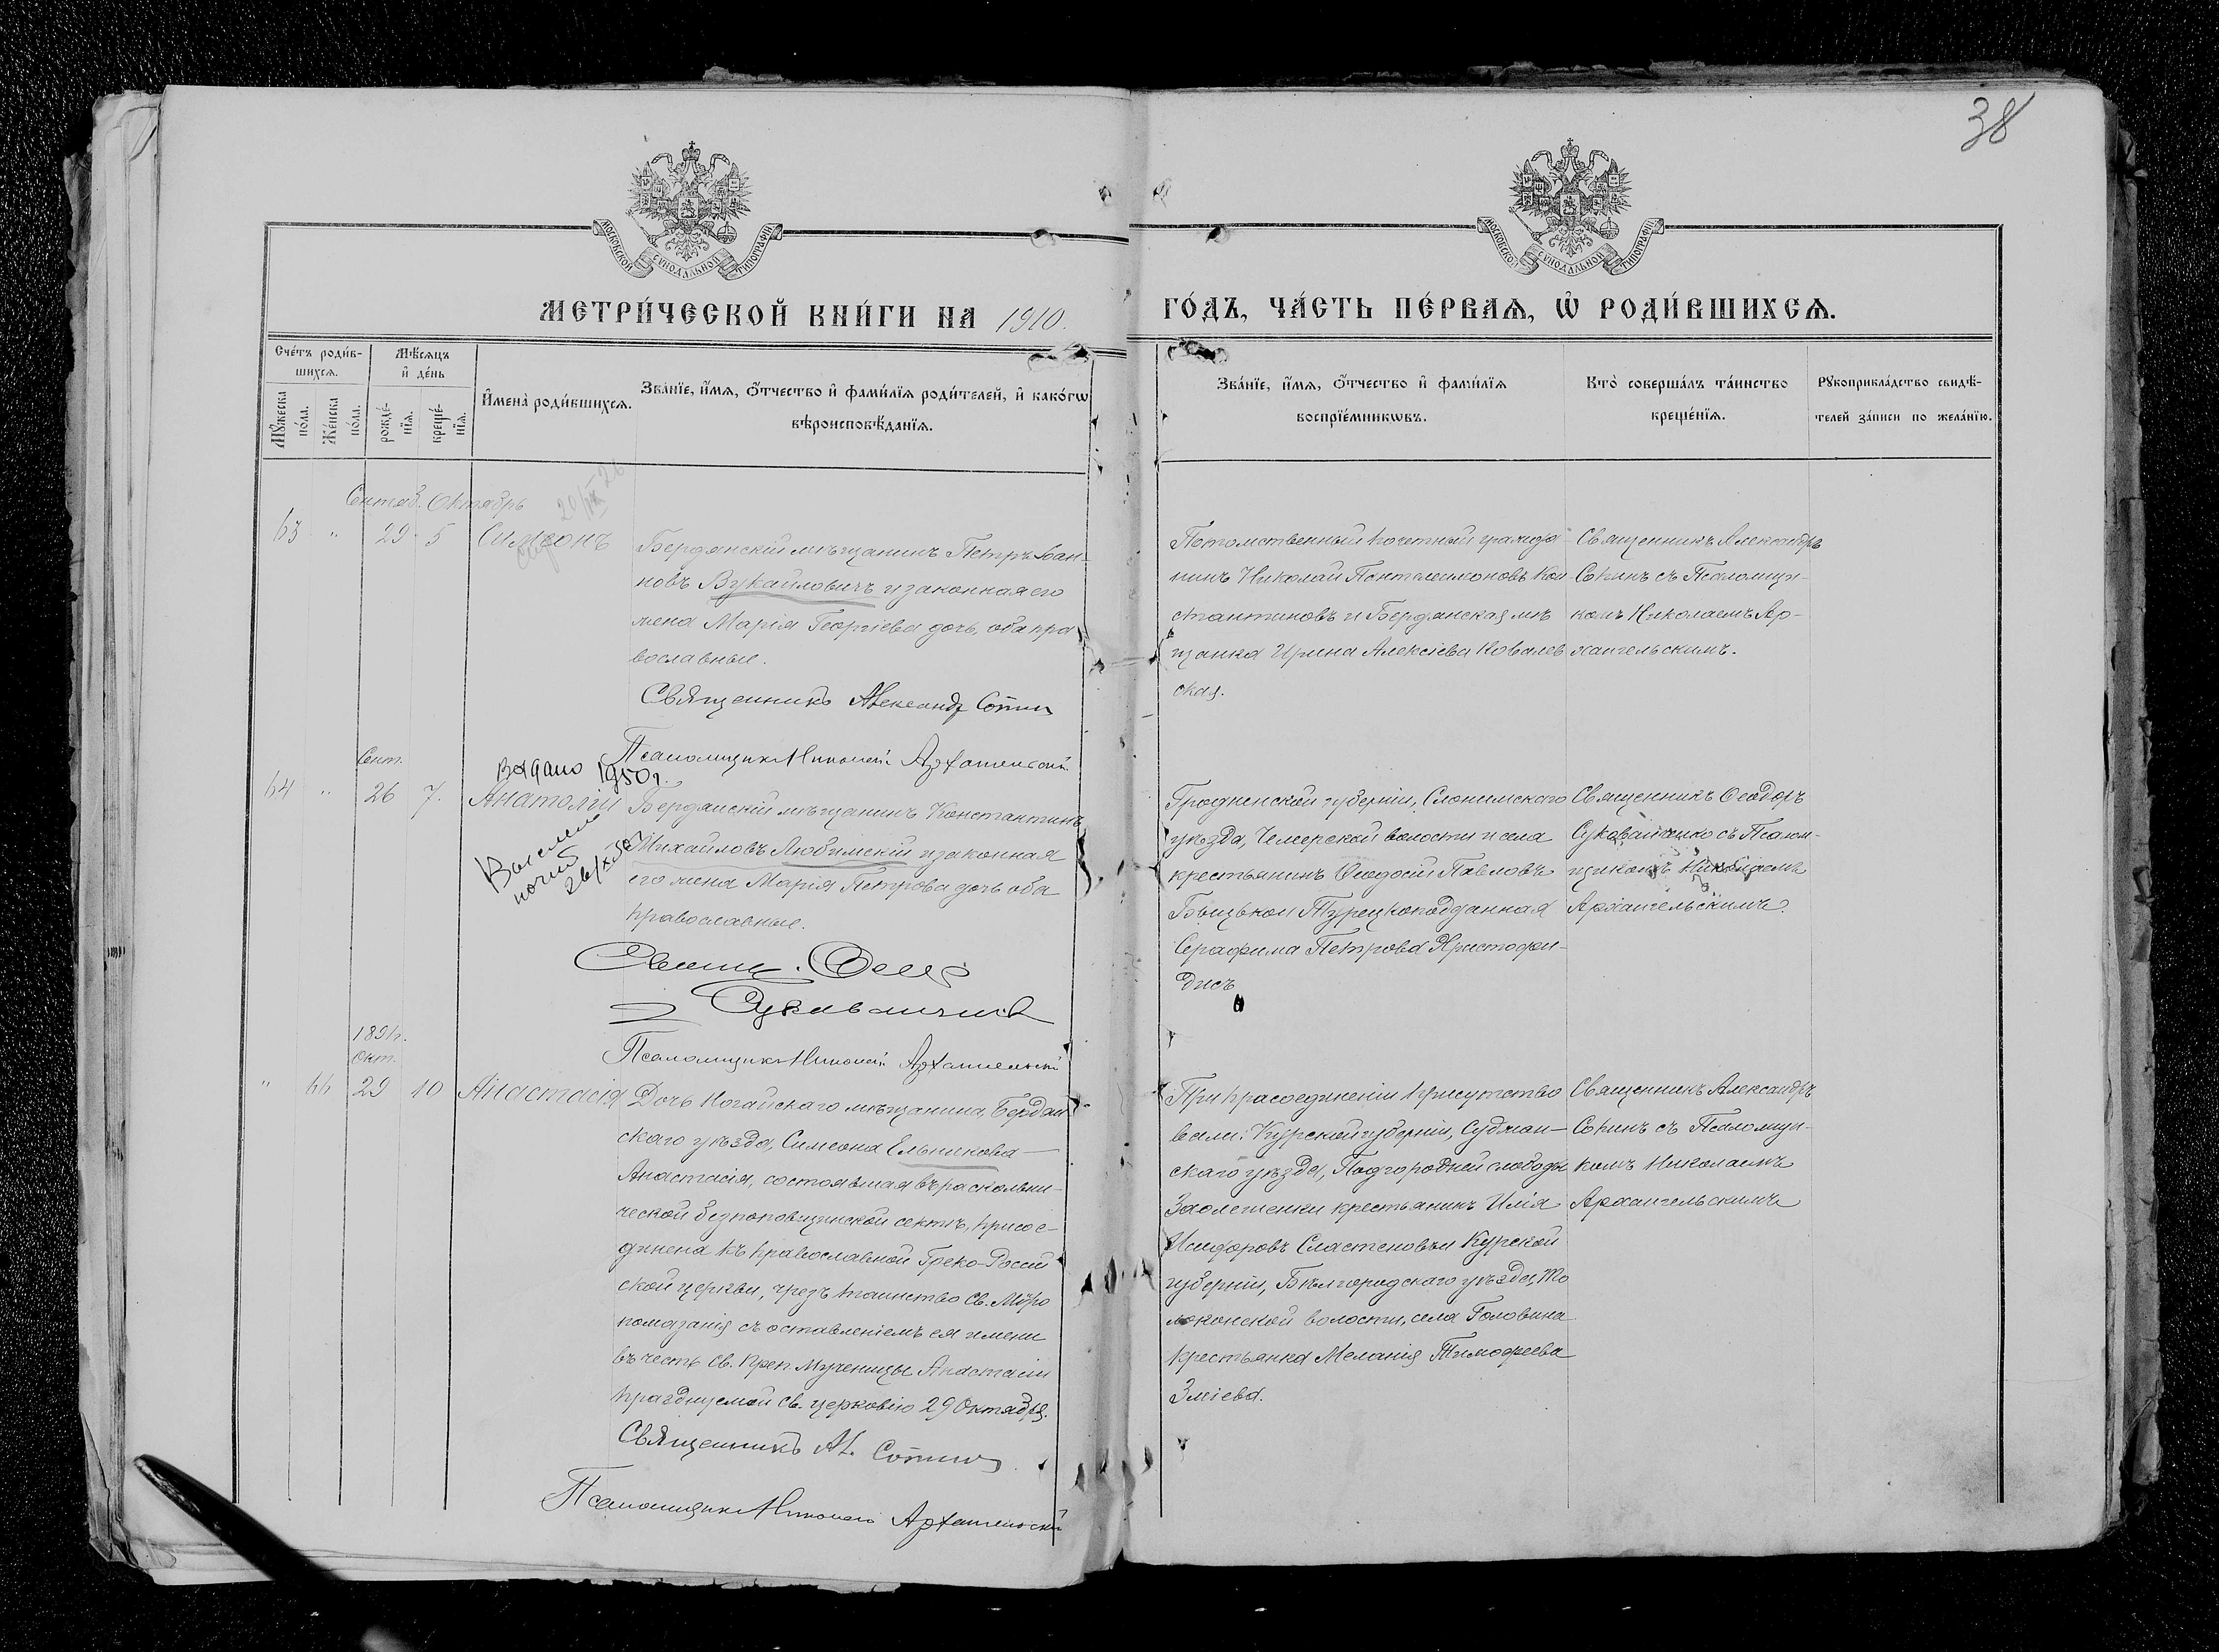 38
МОСКОВСКОЙ СѴНОДАЛЬНОЙ ТИПОГРАФІИ
МОСКОВСКОЙ СѴНОДАЛЬНОЙ ТИПОГРАФІИ
МЕТРИ́ЧЕСКОЙ КНИ́ГИ НА 1910.
ГО́ДЪ, ЧА́СТЬ ПЕ́РВАѦ, Ѽ РОДИ́ВШИХСѦ.
Сче́тъ роди́в-
шихсѧ.
Мꙋжеска
по́ла.
Же́нска
по́ла.
Мѣсѧцъ
и҆ де́нь
рожде́-
нїѧ.
креще́-
нїѧ.
И҆мена̀ роди́вшихсѧ.
Зва́нїе, и҆́мѧ, ѻ҆́тчество и҆ фами́лїѧ роди́телей, и҆ како́гѡ
вѣроисповѣ́данїѧ.
Зва́нїе, и҆́мѧ, ѻ҆́тчество и҆ фами́лїѧ
воспрїе́мникѡвъ.
Кто̀ соверша́лъ та́инство
креще́нїѧ.
Рꙋкоприкла́дство свидѣ́-
телей за́писи по жела́нїю.
Сентяб. Октябрь
63 " 29 5 Симеонъ
Бердянскій мѣщанинъ Петръ Іоан-
новъ Вукайловичъ и законная его
жена Марія Георгіева дочь, оба пра
вославные.
Священникъ Александр Сопин
Псаломщикъ Николай Архангельскій
Потомственный почетный гражда-
нинъ Николай Пантелеимоновъ Кон
стантиновъ и Бердянская мѣ
щанка Ирина Алексіева Ковалев
ская.
Священникъ Александръ
Сопинъ съ Псаломщи-
комъ Николаемъ Ар-
хангельскимъ.
Сент.
Выдано 1950 г.
64 " 26 7. Анатолій
26/X 50
Бердянскій мѣщанинъ Константинъ
Михайловъ Любимскій и законная
его жена Марія Петрова дочь оба
православные.
Псаломщикъ Николай Архангельскій
Гродненской губерніи, Слонимскаго
уѣзда, Чемерской волости и села
крестьянинъ Ѳеодосій Павловъ
Турецкоподданная
Серафима Петрова Христофи-
дисъ
Священникъ Ѳеодоръ
съ Псалом-
щикомъ Николаемъ
Архангельскимъ.
1891 г.
Окт.
" 66 29 10 Анастасія
Дочь Ногайскаго мѣщанина, Бердян
скаго уѣзда, Симеона Ельникова—
Анастасія, состоявшая въ раскольни-
ческой безпоповщинской сектѣ, присое-
динена къ православной Греко-Россій
ской церкви, чрезъ таинство Св. Мѵро
помазанія съ оставленіемъ ея имени
въ честь Св. Преп Мученицы Анастасіи
празднуемой Св. церковію 29 Октября.
Священникъ Ал. Сопин
Псаломщикъ Николай Архангельскій
При присоединеніи присутство
вали: Курской губерніи, Суджан-
скаго уѣзда, Подгородней слободы
Заолешенки крестьянинъ Илія
Исидоровъ Сластеновъ и Курской
губерніи, Бѣлгородскаго уѣзда, То
локонской волости, села Головина
крестьянка Меланія Тимофеева
Зміева.
Священникъ Александръ
Сопинъ съ Псаломщи-
комъ Николаемъ
Архангельскимъ